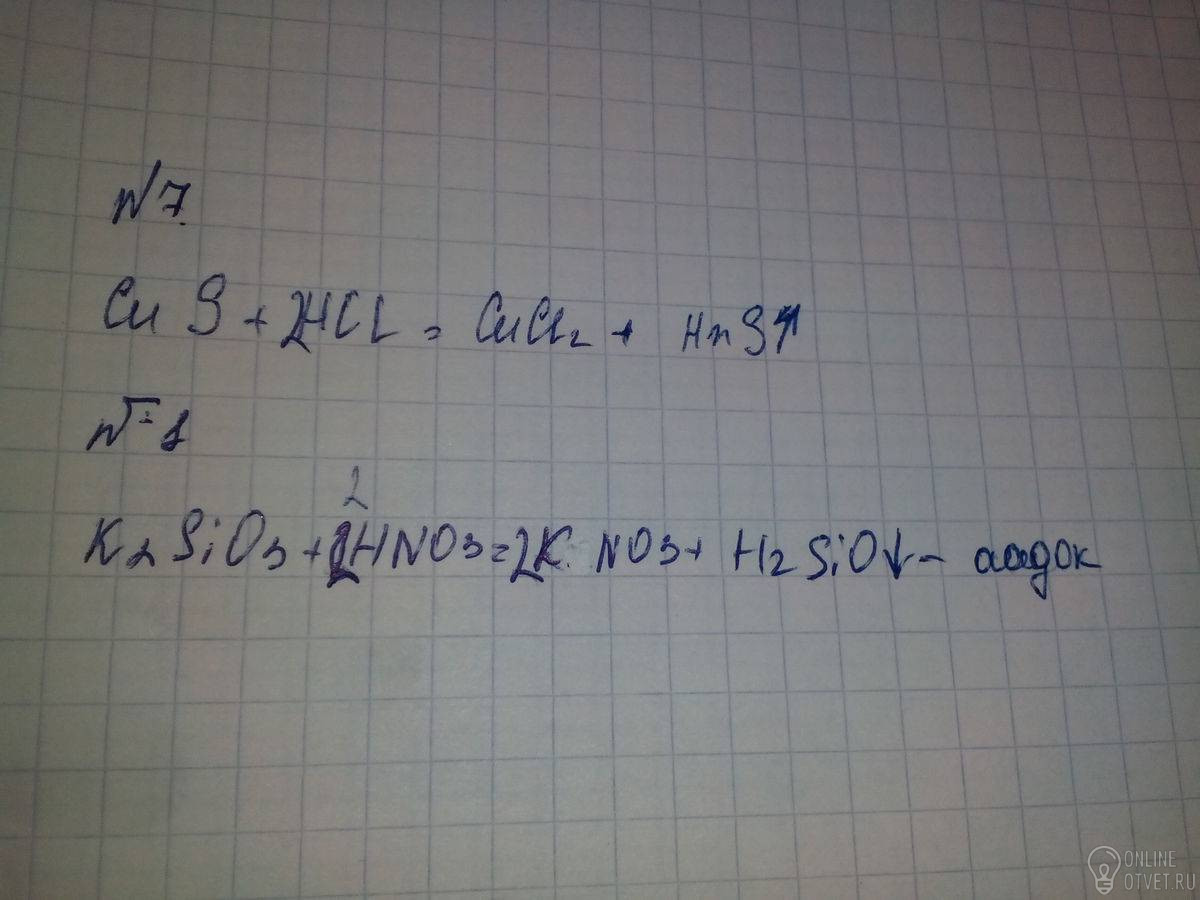 №7.
CuS + 2HCl = CuCl2 + HnS↑
№1
2
K2SiO3 + 2HNO3 = 2K. NO3 + H2SiO↓ - оадок
ONLINE
OTVET.RU